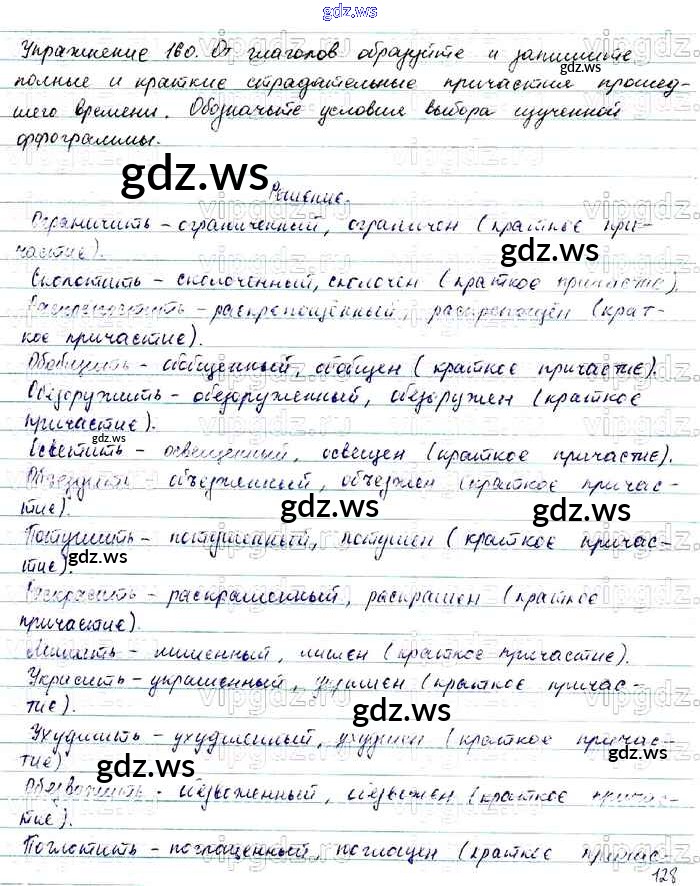 gdz.ws
Упражнение 160. От глаголов образуйте и запишите
полные и краткие страдательные причастия прошед-
шего времени. Обозначьте условие выбора изученной
орфограммы.
Решение.
Ограничить – ограниченный, ограничен (краткое при-
частие).
Сколотить – сколоченный, сколочен (краткое причастие).
Раскрепостить – раскрепощённый, раскрепощён (крат-
кое причастие).
Обобщить – обобщенный, обобщен (краткое причастие).
Обезоружить – обезоруженный, обезоружен (краткое
причастие).
Осветить – освещенный, освещен (краткое причастие).
– объезженный, объезжен (краткое причас-
тие).
Потушить – потушенный, потушен (краткое причас-
тие).
Раскрасить – раскрашенный, раскрашен (краткое
причастие).
Лишить – лишенный, лишен (краткое причастие).
Украсить – украшенный, (краткое причас-
тие).
Ухудшить – ухудшенный, (краткое причас-
тие)
Обезвожить – обезвоженный, обезвожен (краткое причас-
тие).
Поглотить – поглощенный, поглощен (краткое причас-
128